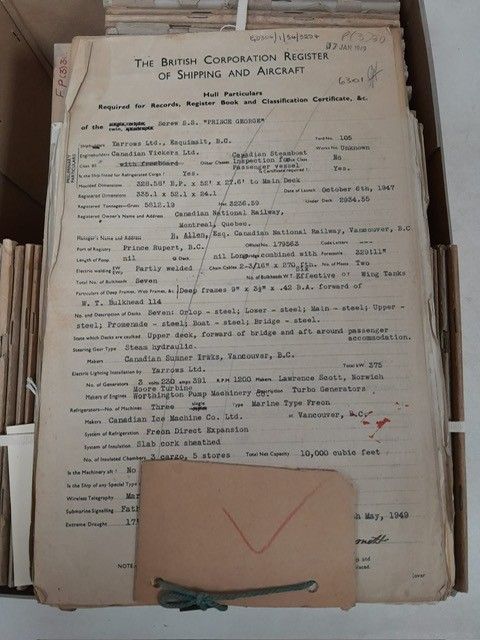 P(3)20
17 JAN 1919
6301
THE BRITISH CORPORATION REGISTER
OF SHIPPING AND AIRCRAFT
Hull Particulars
Required for Records, Register Book and Classification Certificate, &c.
of the Screw S.S. "PRINCE GEORGE"
Shipbuilders Yarrows Ltd., Esquimalt, B.C. Yard No. 105
Enginebuilders Canadian Vickers Ltd. Works No. Unknown
Class BS with freeboard Other Class Canadian Steamboat Inspection for Passenger vessel No
Is the Ship fitted for Refrigerated Cargo? Yes. Certificate required? Yes.
Moulded Dimensions 328.56' B.P. x 52' x 27.6' to Main Deck
Registered Dimensions 335.1 x 52.1 x 24.1 Date of Launch October 6th, 1947
Registered Tonnages—Gross 5812.19 Net 3236.59 Under Deck 2934.55
Registered Owner's Name and Address Canadian National Railway,
Montreal, Quebec.
Manager's Name and Address B. Allen, Esq. Canadian National Railway, Vancouver, B.C
Port of Registry Prince Rupert, B.C. Official No. 179563 Code Letters
Length of Poop nil Q Deck nil Long combined with Forecastle 329'11"
Electric welding Partly welded Chain Cables 2-3/16" x 270 fth. No. of Masts Two
Total No. of Bulkheads Seven No. of Bulkheads W.T. Effective six or Wing Tanks
Particulars of Deep Frames, Web Frames, &c. Deep frames 9" x 3½" x .42 B.A. forward of
W. T. Bulkhead 114
No. and Description of Decks Seven: Orlop - steel; Lower - steel; Main - steel; Upper -
steel; Promenade - steel; Boat - steel; Bridge - steel.
State which Decks are caulked Upper deck, forward of bridge and aft around passenger
accommodation.
Steering Gear Type Steam hydraulic.
Makers Canadian Sumner Iron Works, Vancouver, B.C.
Electric Lighting Installation by Yarrows Ltd. Total kW 375
No. of Generators 3 volts 230 amps 391 R.P.M 1200 Makers Lawrence Scott, Norwich
Makers of Engines Moore Turbine Worthington Pump Machinery Co. Description Turbo Generators
Refrigerators—No. of Machines Three Type Marine Type Freon
Makers Canadian Ice Machine Co. Ltd. Vancouver, B.C.
System of Refrigeration Freon Direct Expansion
System of Insulation Slab cork sheathed
No. of Insulated Chambers 3 cargo, 5 stores Total Net Capacity 10,000 cubic feet
Is the Machinery aft No
Is the Ship of any Special Type
Wireless Telegraphy Mar
Submarine Signalling Fath
Extreme Draught 17' May, 1949
NOTE